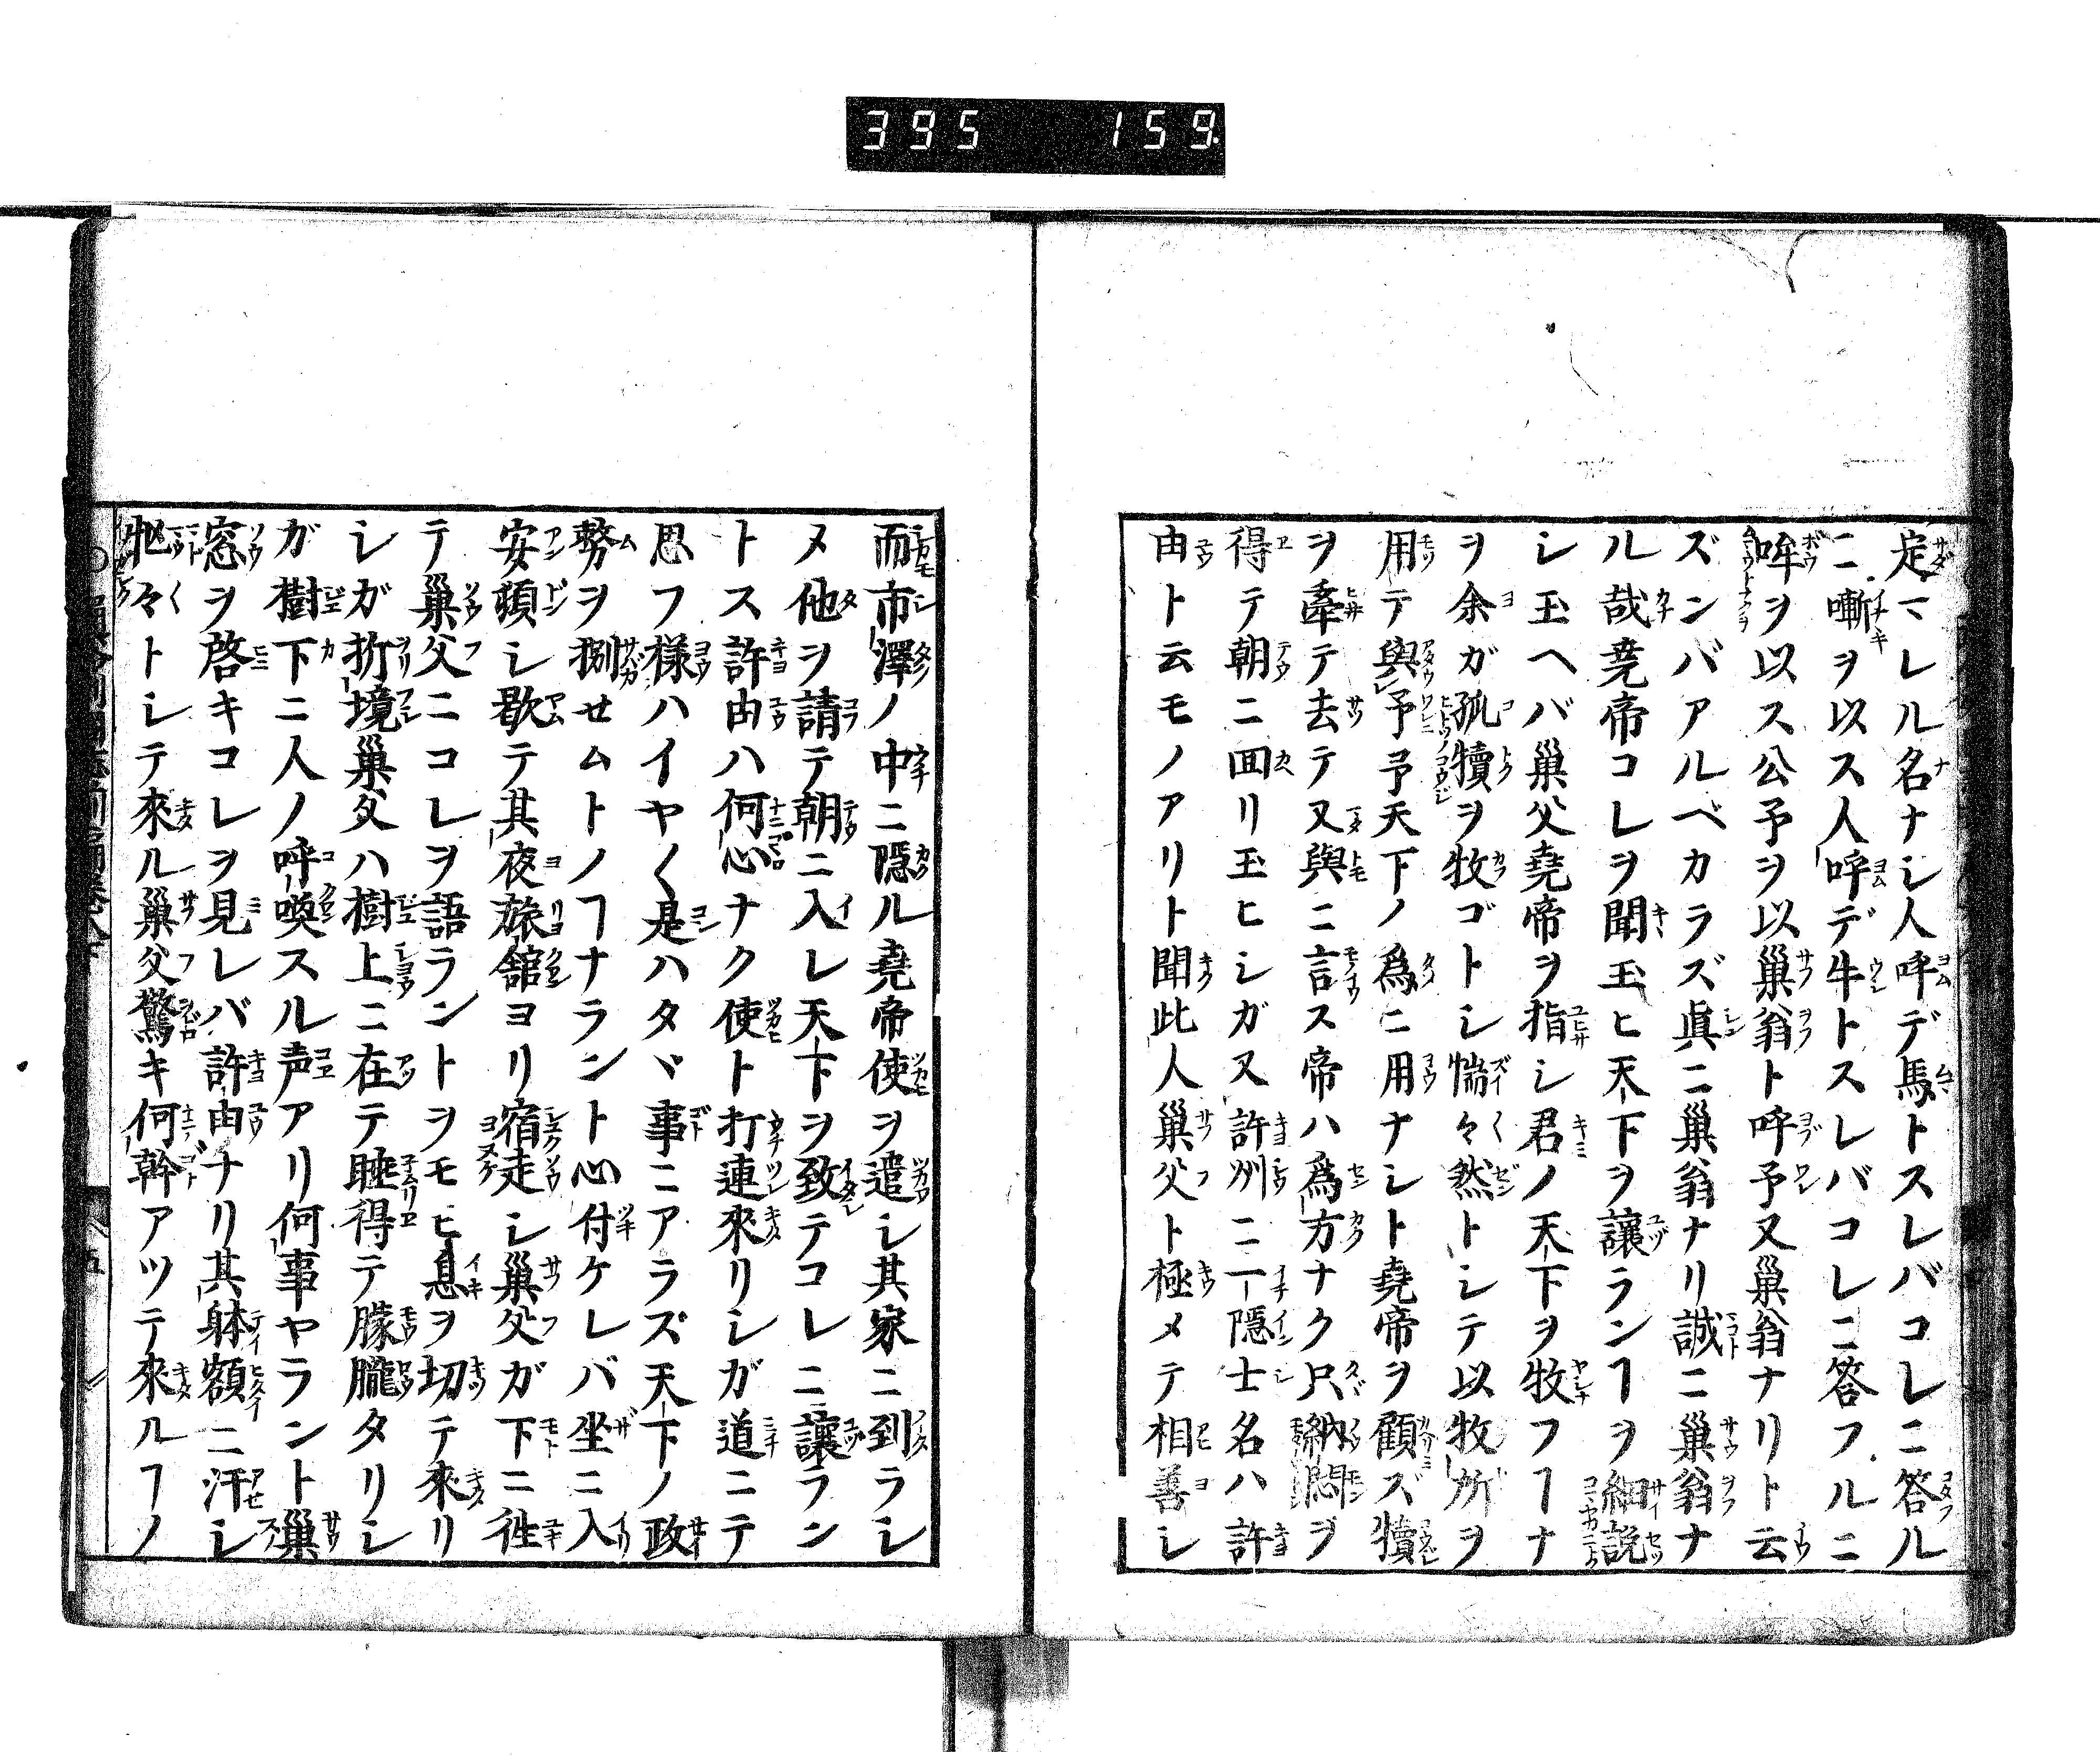 395 159
定マレル名ナシ人呼デ馬トスレバコレニ答ル
ニ嘶ヲ以ス人呼デ牛トスレバコレニ答フルニ
哞ヲ以ス公予ヲ以巣翁ト呼予又巣翁ナリト云
ズンバアルベカラズ眞ニ巣翁ナリ誠ニ巣翁ナ
ル哉尭帝コレヲ聞玉ヒ天下ヲ讓ランヿヲ細説
シ玉ヘバ巣父尭帝ヲ指シ君ノ天下ヲ牧フヿナ
ヲ余ガ孤犢ヲ牧ゴトシ惴々然トシテ以牧所ヲ
用テ與予予天下ノ爲ニ用ナシト尭帝ヲ顧ズ犢
ヲ牽テ去テ又與ニ言ス帝ハ爲方ナク只納悶ヲ
得テ朝ニ囬リ玉ヒシガ又許州ニ一隠士名ハ許
由ト云モノアリト聞此人巣父ト極メテ相善シ
而市澤ノ中ニ隠ル尭帝使ヲ遣シ其家ニ到ラシ
メ他ヲ請テ朝ニ入レ天下ヲ致テコレニ讓ラン
トス許由ハ何心ナク使ト打連來リシガ道ニテ
思フ様ハイヤく是ハタヾ事ニアラズ天下ノ政
務ヲ捌せムトノヿナラント心付ケレバ坐ニ入
安頓シ歇テ其夜旅舘ヨリ宿走シ巣父ガ下ニ徃
テ巣父ニコレヲ語ラントヲモヒ息ヲ切テ來リ
シガ折境巣父ハ樹上ニ在テ睡得テ朦朧タリシ
ガ樹下ニ人ノ呼喚スル声アリ何事ヤラント巣
窓ヲ啓キコレヲ見レバ許由ナリ其躰額ニ汗シ
々トシテ來ル巣父驚キ何幹アツテ來ルヿノ